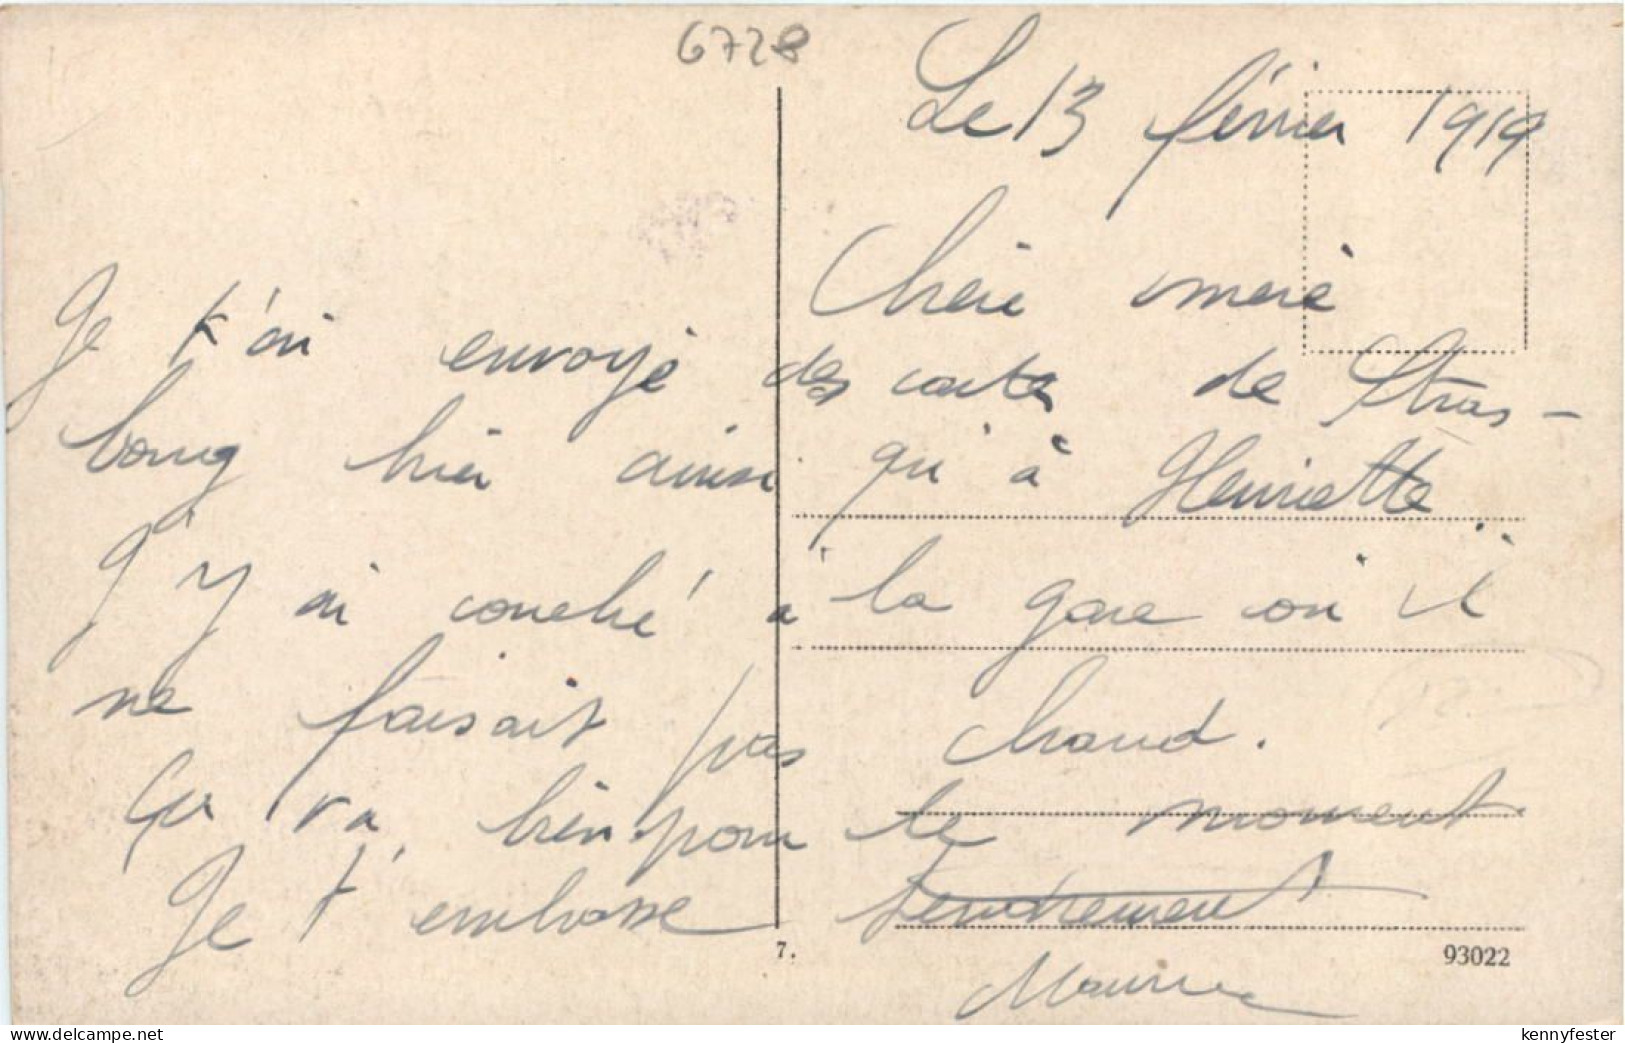 6728
Le 13 février 1919
Chère mère
Je t'ai envoyé des cartes de Stras-
bourg hier ainsi qu'à Henriette.
J'y ai couché à la gare où il
ne faisait pas chaud.
Ça va bien pour le moment
Je t'embrasse tendrement
Maurice
7.
93022
www.delcampe.net
kennyfester